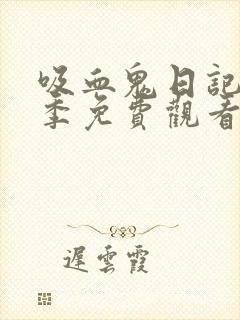 吸血鬼日記
季免費觀看
遲雲霞